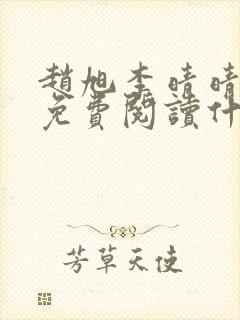 趙旭李晴晴
免費閱讀什
芳草天使